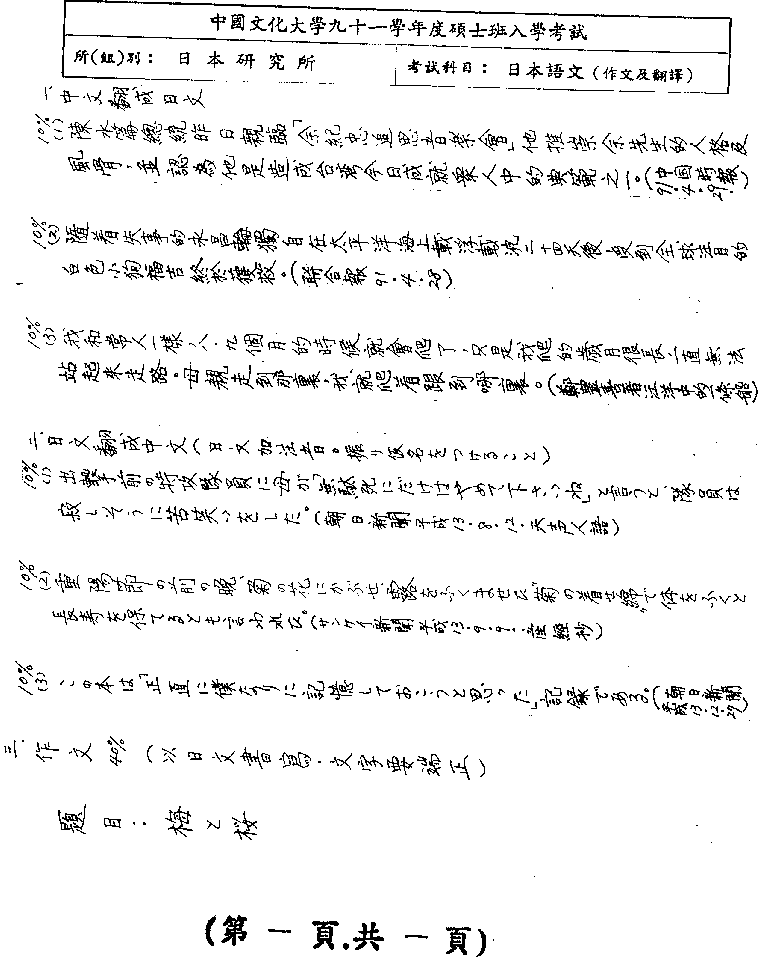 中國文化大學九十一學年度碩士班入學考試
所(組)別： 日本研究所
考試科目： 日本語文（作文及翻譯）
一、中文翻成日文
10% (1) 陳水扁總統昨日親臨「余紀忠追思音樂會」他推崇余先生的人格及
風骨，並認為他是造就台灣今日成就眾人中的典範之一。(中國時報 91.4.29.)
10% (2) 隨著失事的永昌輪獨自在太平洋海上載浮載沈二十四天後，受到全球注目的
白色小狗福吉終於獲救。(聯合報 91.4.28)
10% (3) 我和常人一樣，八、九個月的時候就會爬了，只是我爬的歲月很長，一直無法
站起來走路。母親走到那裏，我就爬着跟到哪裏。(鄭豐喜著汪洋中的一條船)
二、日文翻成中文（日文加注音。振り仮名をつけること）
10% (1) 出撃前の特攻隊員に母が「無駄死にだけはやめて下さいね」と言うと、隊員は
寂しそうに苦笑いをした。(朝日新聞 平成13.8.12.天声人語)
10% (2) 重陽節の前の晩、菊の花にかぶせ、露をふくませた“菊の着せ綿”で体をふくと
長寿を保てるとも言われた。(サンケイ新聞 平成13.9.9.産経抄)
10% (3) この本は「正直に僕なりに記憶しておこうと思った」記録である。(朝日新聞 平成13.12.29)
三、作文 40%（以日文書寫．文字要端正）
題目：梅と桜
(第一頁.共一頁)